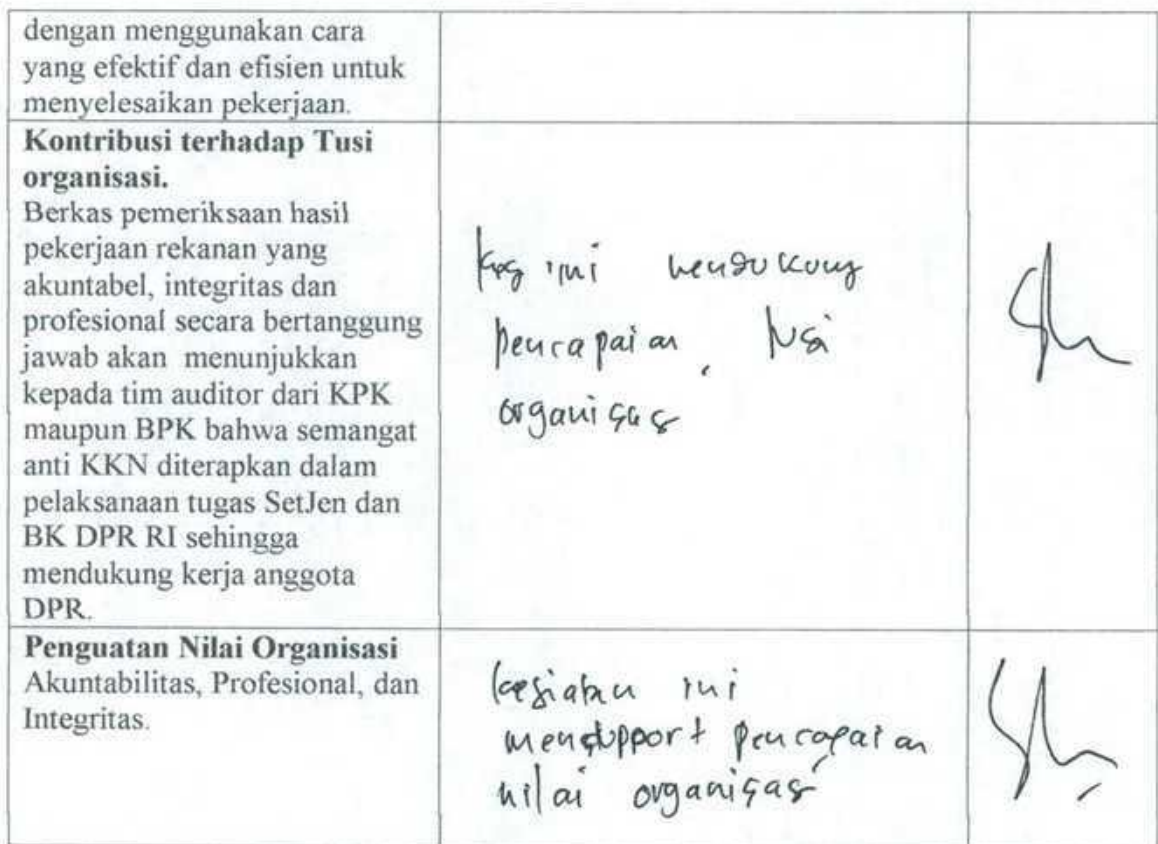 dengan menggunakan cara
yang efektif dan efisien untuk
menyelesaikan pekerjaan.
Kontribusi terhadap Tusi
organisasi.
Berkas pemeriksaan hasil
pekerjaan rekanan yang
akuntabel, integritas dan
profesional secara bertanggung
jawab akan menunjukkan
kepada tim auditor dari KPK
maupun BPK bahwa semangat
anti KKN diterapkan dalam
pelaksanaan tugas SetJen dan
BK DPR RI sehingga
mendukung kerja anggota
DPR.
ini mendukung
pencapaian
organisasi
Penguatan Nilai Organisasi
Akuntabilitas, Profesional, dan
Integritas.
kegiatan ini
mensupport pencapaian
nilai organisasi